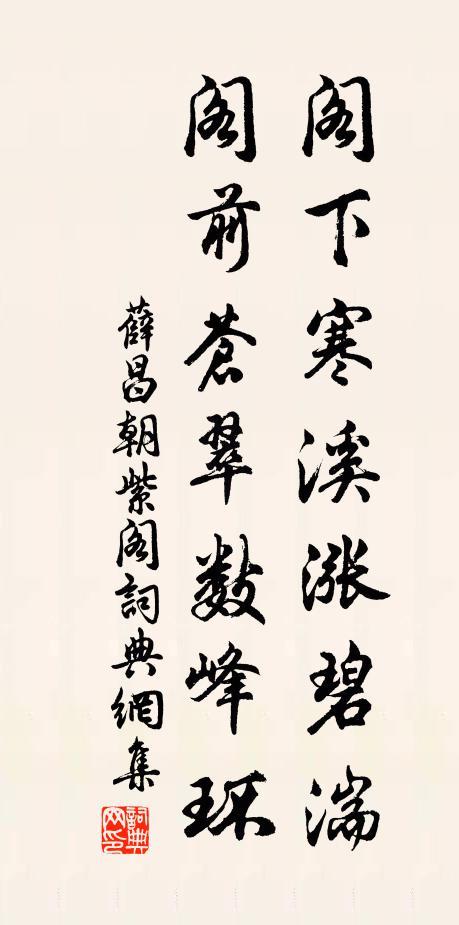 阁下寒溪涨碧湍
阁前苍翠数峰环
薛昌朝紫阁詞典網集
詞典网印